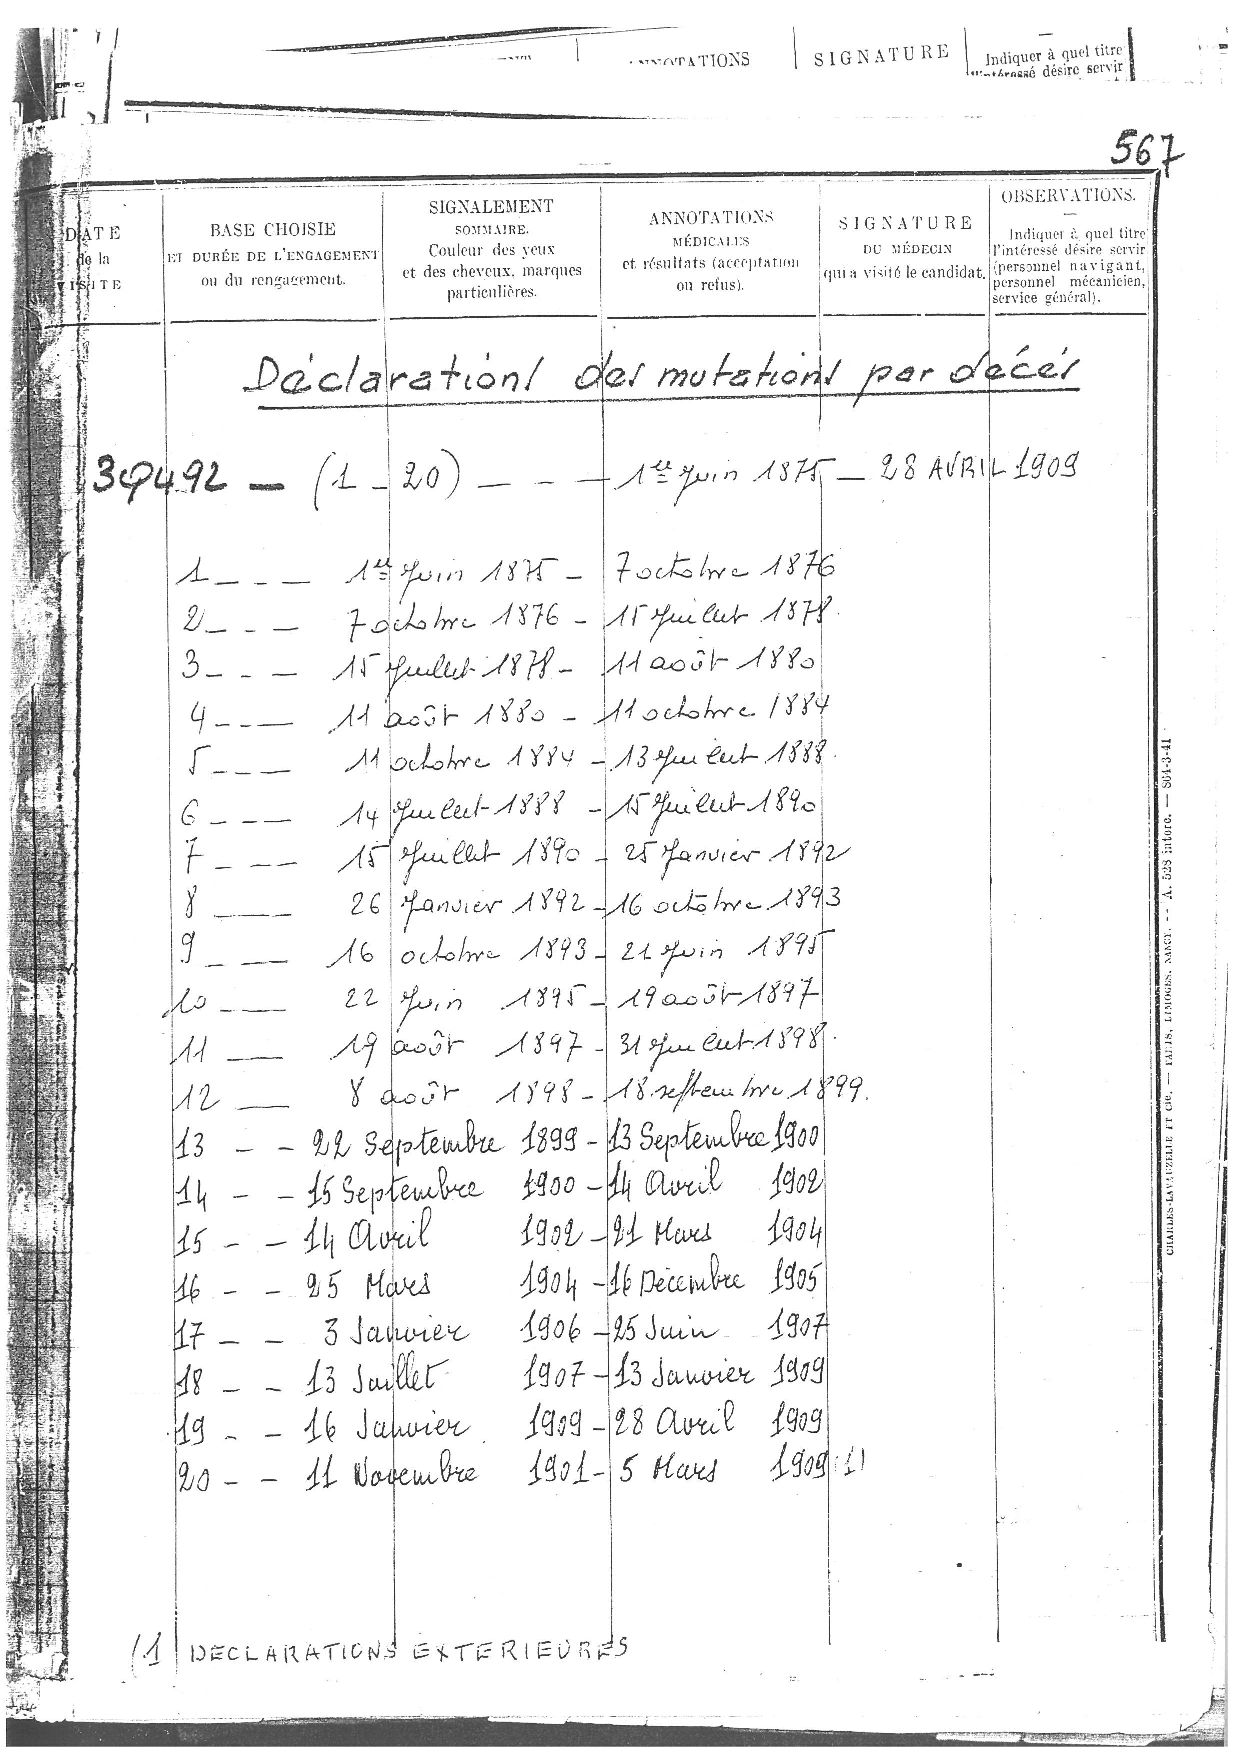 ANNOTATIONS SIGNATURE Indiquer à quel titre
l'intéressé désire servir
567
DATE
de la
VISITE
BASE CHOISIE
ET DURÉE DE L'ENGAGEMENT
ou du rengagement.
SIGNALEMENT
SOMMAIRE.
Couleur des yeux
et des cheveux, marques
particulières.
ANNOTATIONS
MÉDICALES
et résultats (acceptation
ou refus).
SIGNATURE
DU MÉDECIN
qui a visité le candidat.
OBSERVATIONS.
Indiquer à quel titre
l'intéressé désire servir
(personnel navigant,
personnel mécanicien,
service général).
Déclarations des mutations par décès
3Q492 — (1 - 20) - - - 1er Juin 1875 - 28 AVRIL 1909
1 - - - 1er Juin 1875 - 7 octobre 1876
2 - - - 7 octobre 1876 - 15 Juillet 1878.
3 - - - 15 Juillet 1878 - 11 août 1880
4 - - - 11 août 1880 - 11 octobre 1884
5 - - - 11 octobre 1884 - 13 Juillet 1888.
6 - - - 14 Juillet 1888 - 15 Juillet 1890
7 - - - 15 Juillet 1890 - 25 Janvier 1892
8 - - 26 Janvier 1892 - 16 octobre 1893
9 - - 16 octobre 1893 - 21 Juin 1895
10 - - 22 Juin 1895 - 19 août 1897
11 — 19 août 1897 - 31 Juillet 1898.
12 — 8 août 1898 - 18 septembre 1899.
13 - - 22 Septembre 1899 - 13 Septembre 1900
14 - - 15 Septembre 1900 - 14 Avril 1902
15 - - 14 Avril 1902 - 21 Mars 1904
16 - - 25 Mars 1904 - 16 Décembre 1905
17 - - 3 Janvier 1906 - 25 Juin 1907
18 - - 13 Juillet 1907 - 13 Janvier 1909
19 - - 16 Janvier 1909 - 28 Avril 1909
20 - - 11 Novembre 1901 - 5 Mars 1909 (1)
(1 DECLARATIONS EXTERIEURES
CHARLES-LAVAUZELLE ET Cie. — PARIS, LIMOGES, NANCY. — A. 528 intére. — 864-3-41